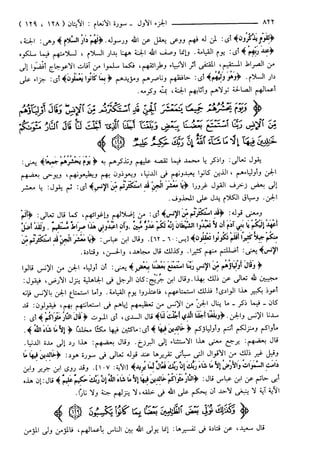 ٨٢٢ الجزء الأول - سورة الأنعام : الآيتان ( ١٢٨ ، ١٢٩ )
﴿لِقَوْمٍ يَذَّكَّرُونَ﴾ أي: لمن له فهم ووعي يعقل عن الله ورسوله. ﴿لَهُمْ دَارُ السَّلَامِ﴾ وهي: الجنة،
﴿عِندَ رَبِّهِمْ﴾ أي: يوم القيامة. وإنما وصف الله الجنة ههنا بدار السلام ، لسلامتهم فيما سلكوه
من الصراط المستقيم، المقتفي أثر الأنبياء وطرائقهم، فكما سلموا من آفات الاعوجاج أفضوا إلى
دار السلام. ﴿وَهُوَ وَلِيُّهُم﴾ أي: حافظهم وناصرهم ومؤيدهم ﴿بِمَا كَانُوا يَعْمَلُونَ﴾ أي: جزاء على
أعمالهم الصالحة تولاهم وأثابهم الجنة، بمنّه وكرمه.
وَيَوْمَ يَحْشُرُهُمْ جَمِيعًا يَا مَعْشَرَ الْجِنِّ قَدِ اسْتَكْثَرْتُم مِّنَ الْإِنسِ وَقَالَ أَوْلِيَاؤُهُم
مِّنَ الْإِنسِ رَبَّنَا اسْتَمْتَعَ بَعْضُنَا بِبَعْضٍ وَبَلَغْنَا أَجَلَنَا الَّذِي أَجَّلْتَ لَنَا قَالَ النَّارُ مَثْوَاكُمْ
خَالِدِينَ فِيهَا إِلَّا مَا شَاءَ اللَّهُ إِنَّ رَبَّكَ حَكِيمٌ عَلِيمٌ
يقول تعالى: واذكر يا محمد فيما تقصه عليهم وتذكرهم به ﴿وَيَوْمَ يَحْشُرُهُمْ جَمِيعًا﴾ يعني:
الجن وأولياءهم ، الذين كانوا يعبدونهم في الدنيا، ويعوذون بهم ويطيعونهم، ويوحي بعضهم
إلى بعض زخرف القول غرورا ﴿يَا مَعْشَرَ الْجِنِّ قَدِ اسْتَكْثَرْتُم مِّنَ الْإِنسِ﴾ أي: ثم يقول: يا معشر
الجن. وسياق الكلام يدل على المحذوف.
ومعنى قوله: ﴿قَدِ اسْتَكْثَرْتُم مِّنَ الْإِنسِ﴾ أي: من إضلالهم وإغوائهم، كما قال تعالى: ﴿أَلَمْ
أَعْهَدْ إِلَيْكُمْ يَا بَنِي آدَمَ أَن لَّا تَعْبُدُوا الشَّيْطَانَ إِنَّهُ لَكُمْ عَدُوٌّ مُّبِينٌ. وَأَنِ اعْبُدُونِي هَٰذَا صِرَاطٌ مُّسْتَقِيمٌ. وَلَقَدْ أَضَلَّ
مِنكُمْ جِبِلًّا كَثِيرًا أَفَلَمْ تَكُونُوا تَعْقِلُونَ﴾ [يس: ٦٠ - ٦٢]. وقال ابن عباس: ﴿يَا مَعْشَرَ الْجِنِّ قَدِ اسْتَكْثَرْتُم مِّنَ
الْإِنسِ﴾ يعني: أضللتم منهم كثيرا. وكذلك قال مجاهد، والحسن، وقتادة.
﴿وَقَالَ أَوْلِيَاؤُهُم مِّنَ الْإِنسِ رَبَّنَا اسْتَمْتَعَ بَعْضُنَا بِبَعْضٍ﴾ يعني: أن أولياء الجن من الإنس قالوا
مجيبين لله تعالى عن ذلك بهذا. وقال ابن جريج: كان الرجل في الجاهلية ينزل الأرض، فيقول:
أعوذ بكبير هذا الوادي! فذلك استمتاعهم، فاعتذروا يوم القيامة. وأما استمتاع الجن بالإنس فإنه
كان - فيما ذكر - ما ينال الجن من الإنس من تعظيمهم إياهم في استعانتهم بهم، فيقولون: قد
سدنا الإنس والجن. ﴿وَبَلَغْنَا أَجَلَنَا الَّذِي أَجَّلْتَ لَنَا﴾ قال السدي، أي الموت ﴿قَالَ النَّارُ مَثْوَاكُمْ﴾ أي:
مأواكم ومنزلكم أنتم وأولياؤكم ﴿خَالِدِينَ فِيهَا﴾ أي: ماكثين فيها مكثا مخلدًا ﴿إِلَّا مَا شَاءَ اللَّهُ﴾.
قال بعضهم: يرجع معنى هذا الاستثناء إلى البرزخ. وقال بعضهم: هذا رد إلى مدة الدنيا.
وقيل غير ذلك من الأقوال التي سيأتي تقريرها عند قوله تعالى في سورة هود: ﴿خَالِدِينَ فِيهَا مَا
دَامَتِ السَّمَاوَاتُ وَالْأَرْضُ إِلَّا مَا شَاءَ رَبُّكَ إِنَّ رَبَّكَ فَعَّالٌ لِّمَا يُرِيدُ﴾ [الآية: ١٠٧]. وقد روى ابن جرير وابن
أبي حاتم عن ابن عباس قال: ﴿النَّارُ مَثْوَاكُمْ خَالِدِينَ فِيهَا إِلَّا مَا شَاءَ اللَّهُ إِنَّ رَبَّكَ حَكِيمٌ عَلِيمٌ﴾ قال: إن هذه
الآية آية لا ينبغي لأحد أن يحكم على الله في خلقه، لا ينزلهم جنة ولا نارًا.
وَكَذَٰلِكَ نُوَلِّي بَعْضَ الظَّالِمِينَ بَعْضًا بِمَا كَانُوا يَكْسِبُونَ
قال سعيد، عن قتادة في تفسيرها: إنما يولي الله بين الناس بأعمالهم، فالمؤمن ولي المؤمن